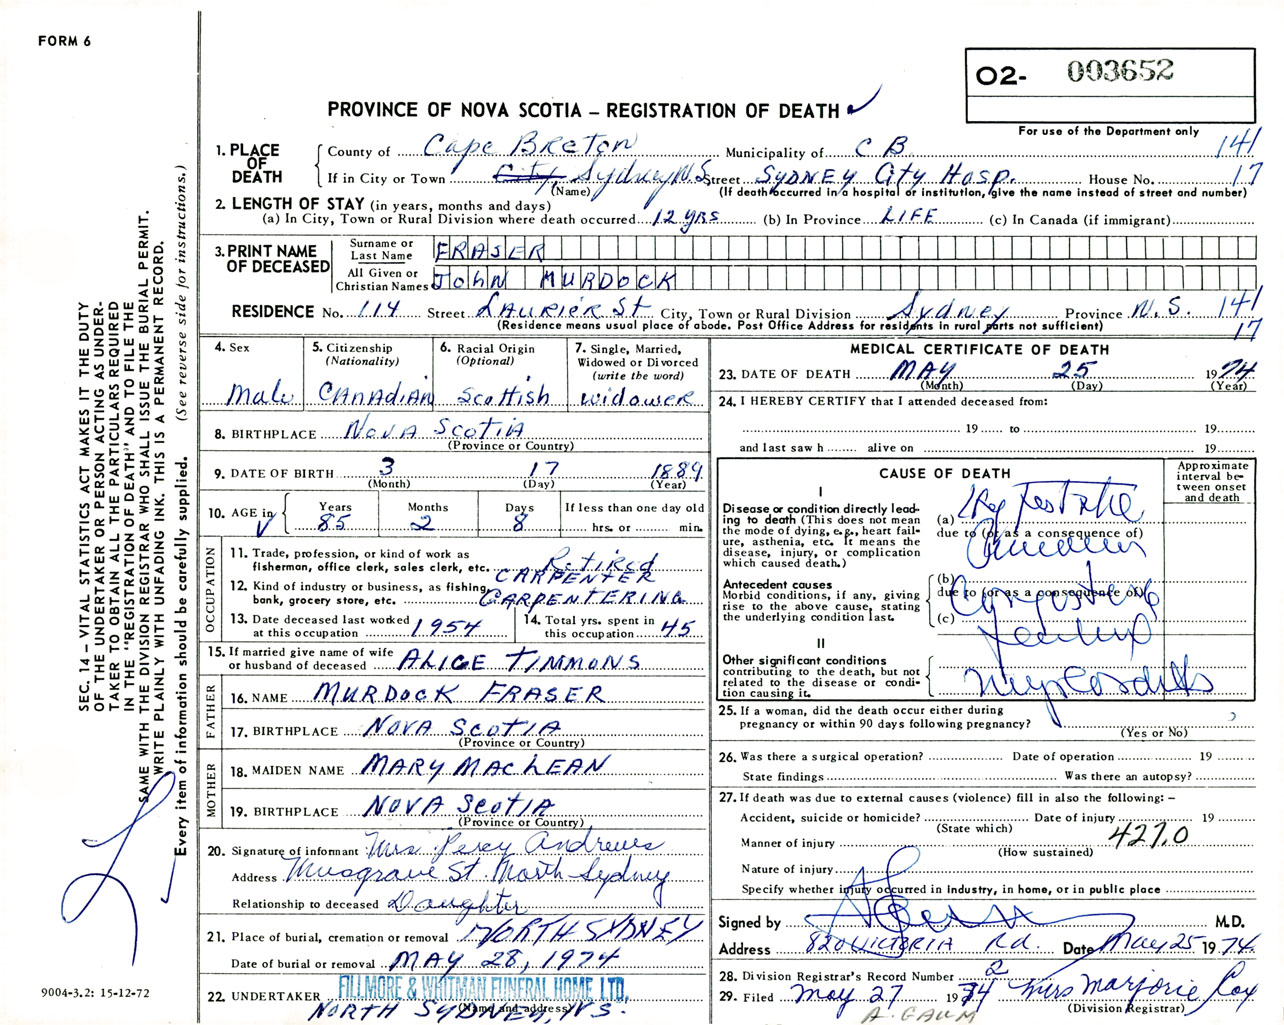 FORM 6
O2- 003652
PROVINCE OF NOVA SCOTIA – REGISTRATION OF DEATH ✓
For use of the Department only
1. PLACE OF DEATH
County of Cape Breton Municipality of C B 141
If in City or Town City, Sydney N.S. Street SYDNEY CITY HOSP. House No. 17
(Name) (If death occurred in a hospital or institution, give the name instead of street and number)
2. LENGTH OF STAY (in years, months and days)
(a) In City, Town or Rural Division where death occurred 12 YRS (b) In Province LIFE (c) In Canada (if immigrant)
3. PRINT NAME OF DECEASED
Surname or Last Name FRASER
All Given or Christian Names JOHN MURDOCK
RESIDENCE No. 114 Street LAURIER St City, Town or Rural Division Sydney Province N.S. 141
(Residence means usual place of abode. Post Office Address for residents in rural parts not sufficient) 17
4. Sex
Male
5. Citizenship
(Nationality)
CANADIAN
6. Racial Origin
(Optional)
Scottish
7. Single, Married,
Widowed or Divorced
(write the word)
widower
8. BIRTHPLACE NOVA SCOTIA
(Province or Country)
9. DATE OF BIRTH 3 17 1889
(Month) (Day) (Year)
10. AGE in ✓
Years Months Days If less than one day old
85 2 8 hrs. or min.
OCCUPATION
11. Trade, profession, or kind of work as
fisherman, office clerk, sales clerk, etc. Retired
CARPENTER
12. Kind of industry or business, as fishing,
bank, grocery store, etc. CARPENTERING
13. Date deceased last worked
at this occupation 1954
14. Total yrs. spent in
this occupation 45
15. If married give name of wife
or husband of deceased ALICE TIMMONS
FATHER
16. NAME MURDOCK FRASER
17. BIRTHPLACE NOVA SCOTIA
(Province or Country)
MOTHER
18. MAIDEN NAME MARY MACLEAN
19. BIRTHPLACE NOVA SCOTIA
(Province or Country)
20. Signature of informant Mrs. Percy Andrews
Address Musgrave St. North Sydney
Relationship to deceased Daughter
21. Place of burial, cremation or removal NORTH SYDNEY
Date of burial or removal MAY 28, 1974
22. UNDERTAKER FILLMORE & WHITMAN FUNERAL HOME LTD.
(Name and address)
NORTH SYDNEY, N.S.
MEDICAL CERTIFICATE OF DEATH
23. DATE OF DEATH MAY 25 1974
(Month) (Day) (Year)
24. I HEREBY CERTIFY that I attended deceased from:
19 to 19
and last saw h alive on 19
CAUSE OF DEATH
Approximate interval between onset and death
I
Disease or condition directly leading to death (This does not mean the mode of dying, e.g., heart failure, asthenia, etc. It means the disease, injury, or complication which caused death.)
(a)
due to (or as a consequence of)
Antecedent causes
Morbid conditions, if any, giving rise to the above cause, stating the underlying condition last.
(b)
due to (or as a consequence of)
(c)
II
Other significant conditions
contributing to the death, but not related to the disease or condition causing it.
25. If a woman, did the death occur either during
pregnancy or within 90 days following pregnancy?
(Yes or No)
26. Was there a surgical operation? Date of operation 19
State findings Was there an autopsy?
27. If death was due to external causes (violence) fill in also the following: –
Accident, suicide or homicide? Date of injury 19
(State which)
Manner of injury 427.0
(How sustained)
Nature of injury
Specify whether injury occurred in industry, in home, or in public place
Signed by M.D.
Address 820 VICTORIA Rd. Date May 25 1974.
28. Division Registrar's Record Number 2
29. Filed May 27 1974 Mrs Marjorie Cox
(Division Registrar)
A. GAUM
SEC. 14 – VITAL STATISTICS ACT MAKES IT THE DUTY
OF THE UNDERTAKER OR PERSON ACTING AS UNDER-
TAKER TO OBTAIN ALL THE PARTICULARS REQUIRED
IN THE "REGISTRATION OF DEATH" AND TO FILE THE
SAME WITH THE DIVISION REGISTRAR WHO SHALL ISSUE THE BURIAL PERMIT.
WRITE PLAINLY WITH UNFADING INK. THIS IS A PERMANENT RECORD.
Every item of information should be carefully supplied. (See reverse side for instructions.)
9004-3.2: 15-12-72